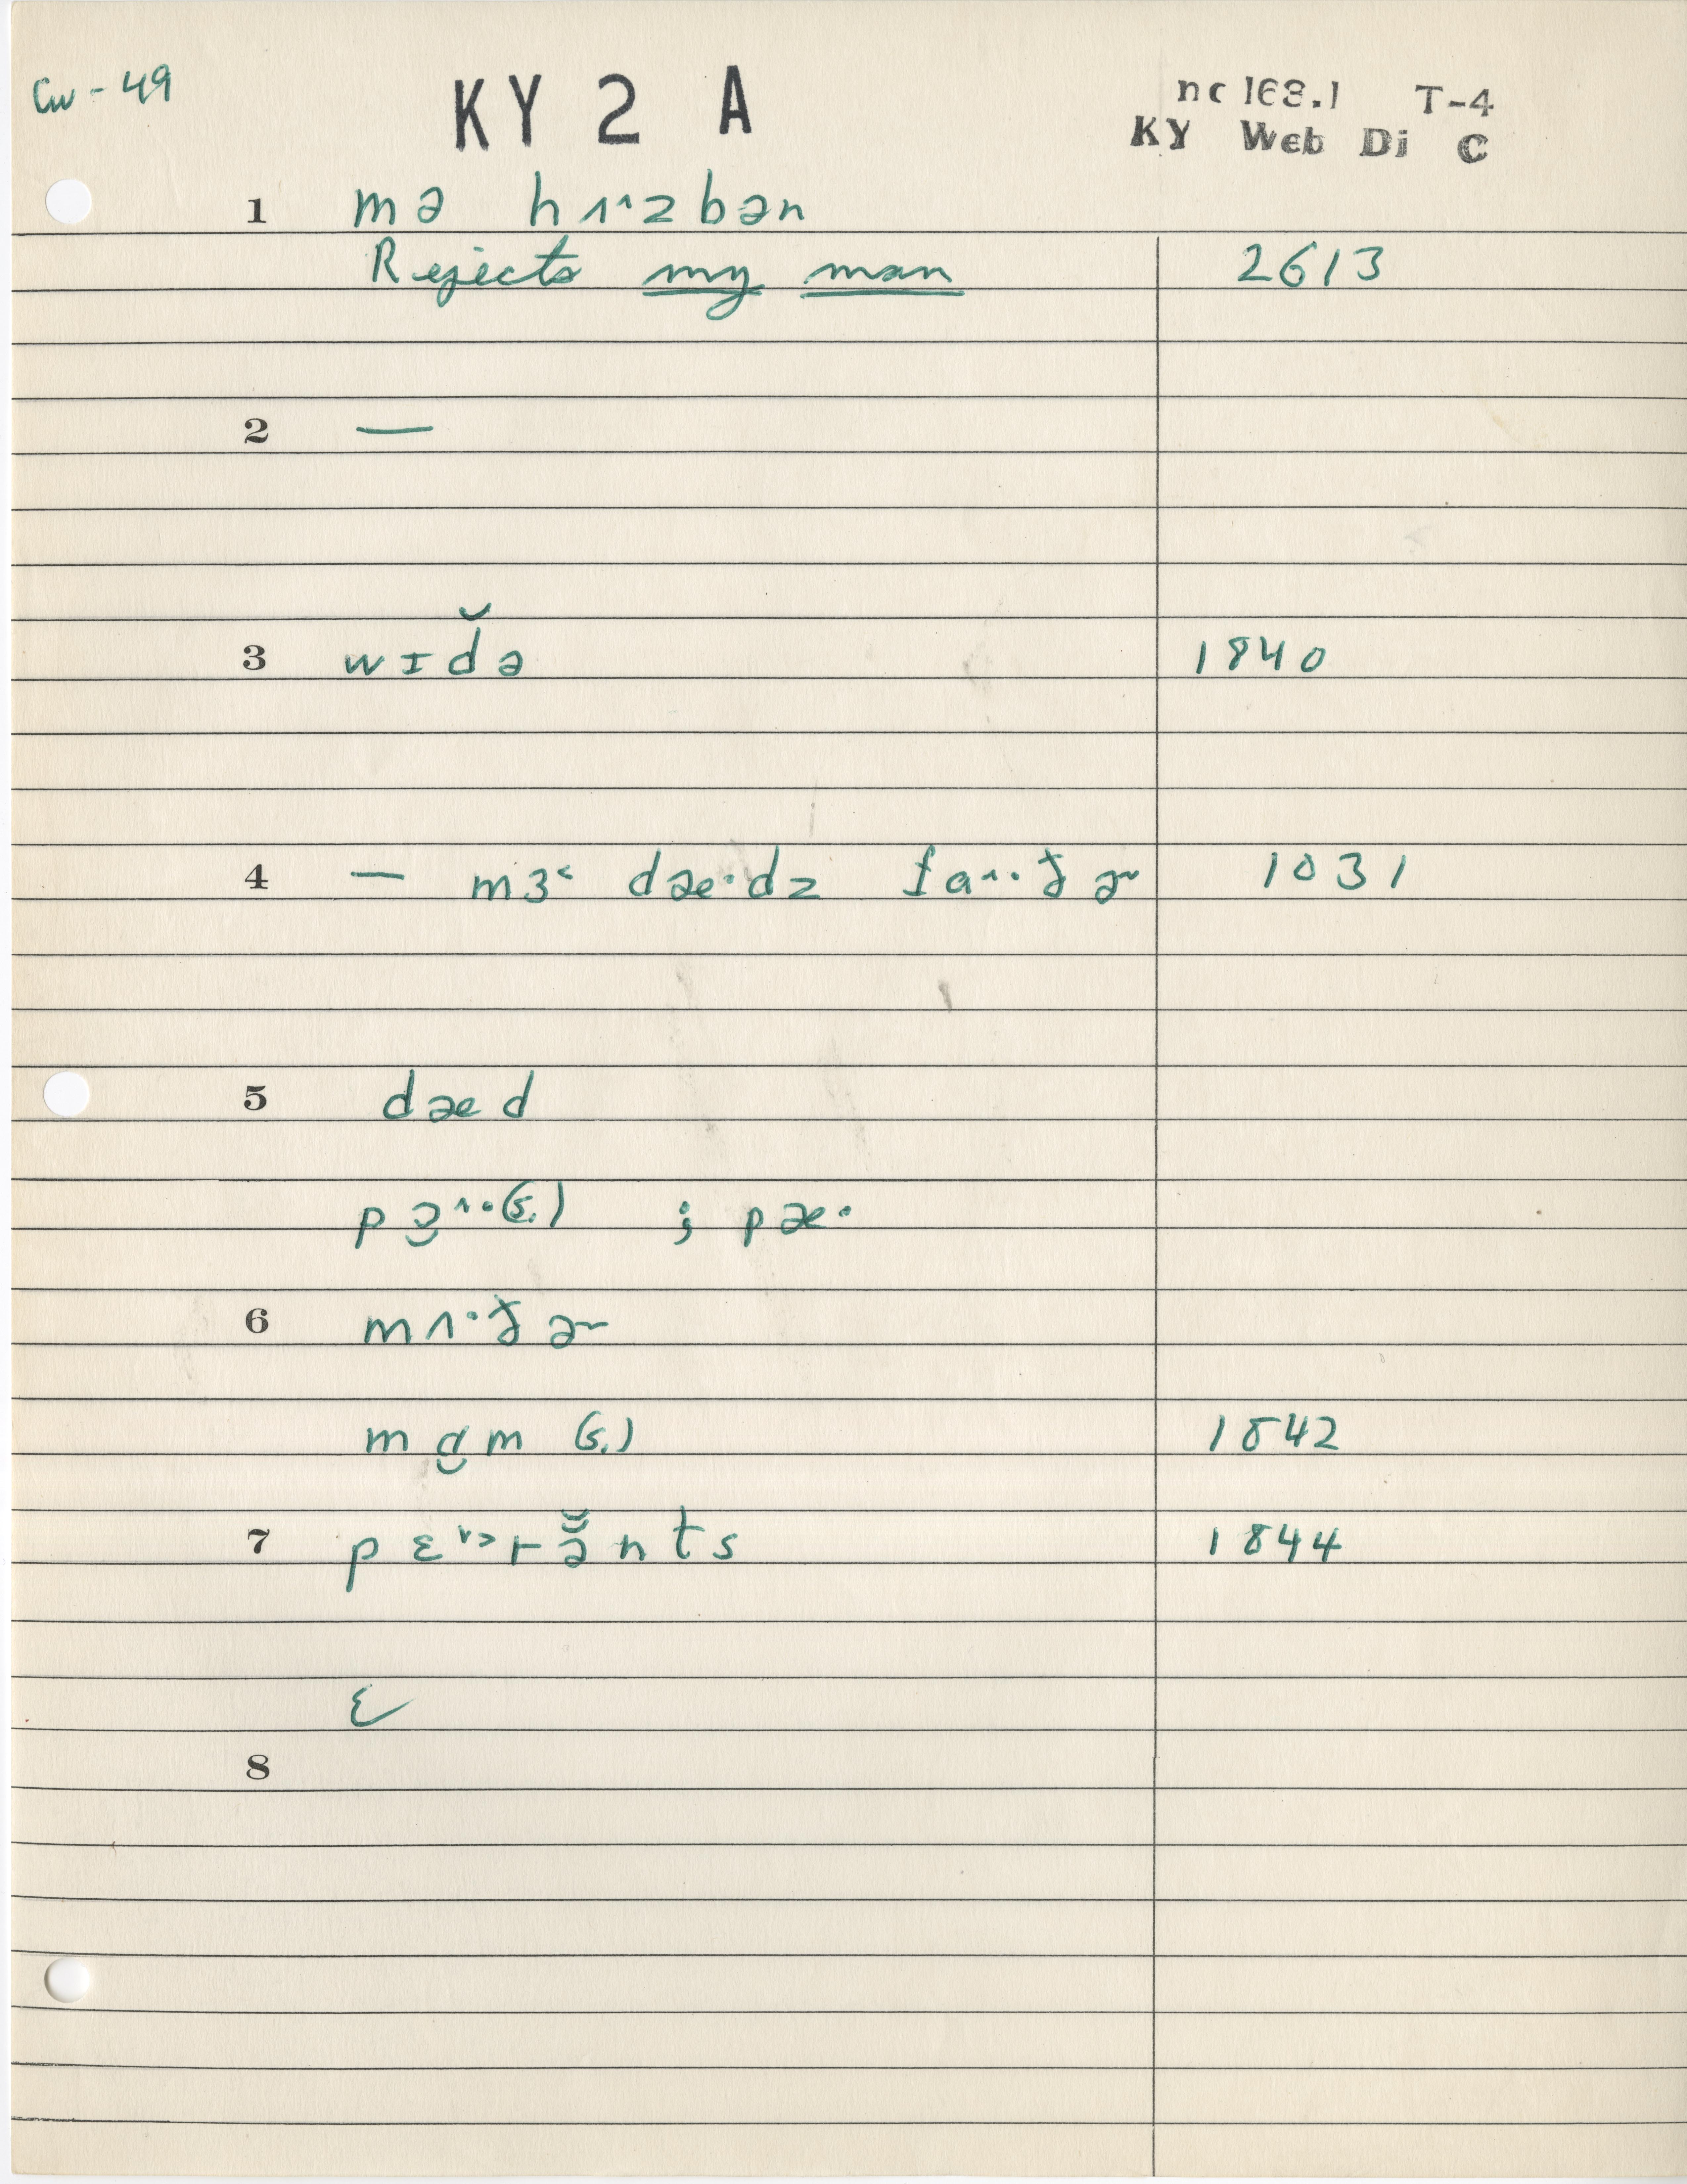 Cw - 49
KY 2 A
nc 168.1 T-4
KY Web Di C
1 mə hʌ^·zbən
Rejects my man 2613
2 —
3 wɪd̆ə 1840
4 — mɜ˂ dæ·dz fɑ^·ð ɚ 1031
5 dæd
(s.) ; pæ·
6 mʌ·ðɚ
(s.) 1842
7 1844
ɛ
8